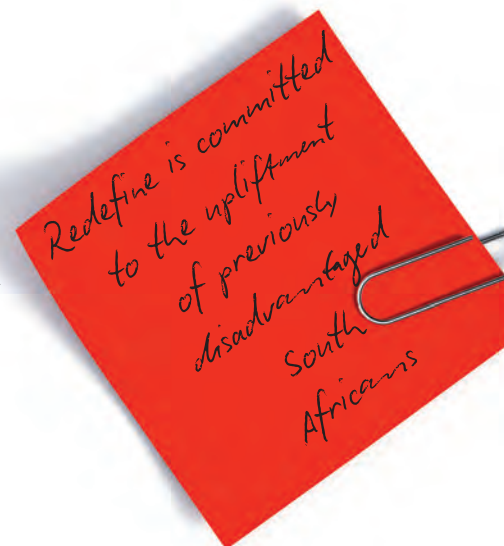 Redefine is committed
to the upliftment
of previously
disadvantaged
South
Africans